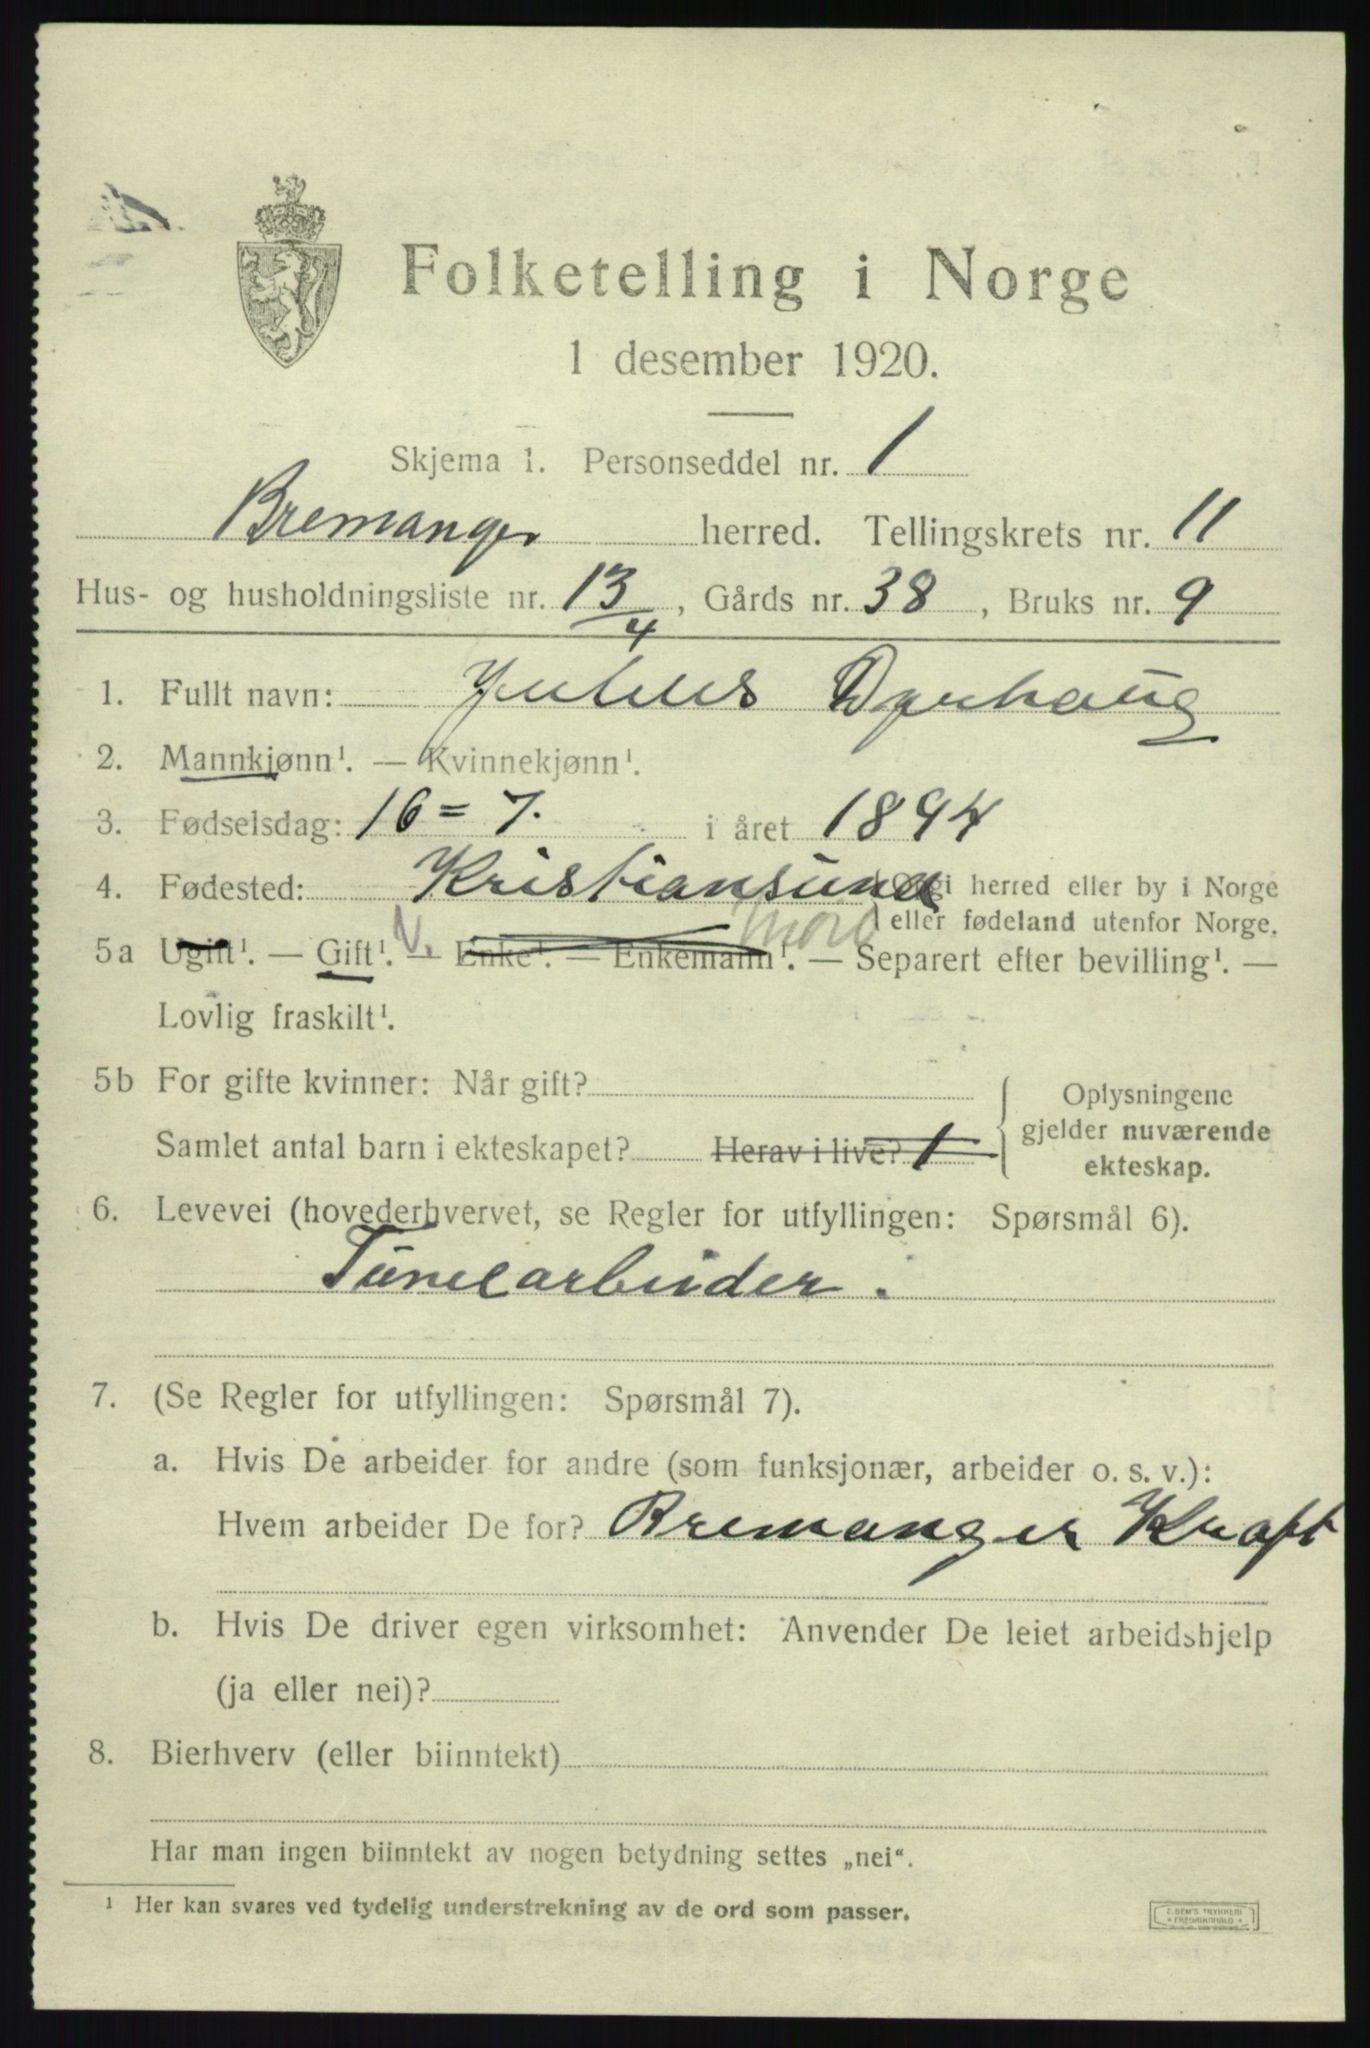 Folketelling i Norge
1 desember 1920.
Skjema 1. Personseddel nr. 1
Bremanger herred. Tellingskrets nr. 11
Hus- og husholdningsliste nr. 13/4, Gårds nr. 38, Bruks nr. 9
1. Fullt navn: Julius Dyrhaug
2. Mannkjønn¹. — Kvinnekjønn¹.
3. Fødselsdag: 16 = 7. i året 1894
4. Fødested: Kristiansund (Opgi herred eller by i Norge
N. eller fødeland utenfor Norge.
5a Ugift¹. — Gift¹. — Enke¹. — Enkemann¹. — Separert efter bevilling¹. —
Lovlig fraskilt¹.
5b For gifte kvinner: Når gift?
Samlet antal barn i ekteskapet? Herav i live? 1
Oplysningene
gjelder nuværende
ekteskap.
6. Levevei (hovederhvervet, se Regler for utfyllingen: Spørsmål 6).
Tunelarbeider.
7. (Se Regler for utfyllingen: Spørsmål 7).
a. Hvis De arbeider for andre (som funksjonær, arbeider o. s. v.):
Hvem arbeider De for? Bremanger Kraft
b. Hvis De driver egen virksomhet: Anvender De leiet arbeidshjelp
(ja eller nei)?
8. Bierhverv (eller biinntekt)
Har man ingen biinntekt av nogen betydning settes „nei“.
¹ Her kan svares ved tydelig understrekning av de ord som passer.